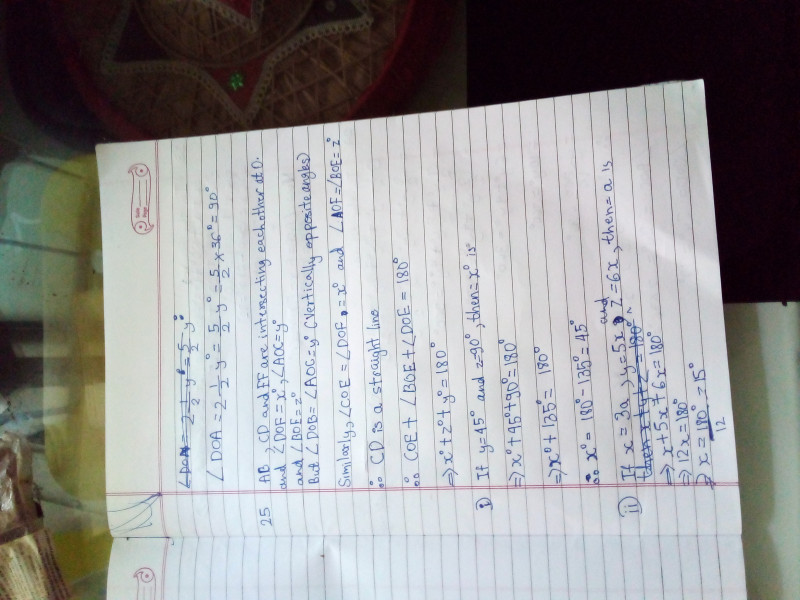 ∠DOA = 2 1/2 y° = 5/2 y°
∠DOA = 2 1/2 y° = 5/2 y° = 5/2 × 36° = 90°
25 AB, CD and EF are intersecting each other at O.
and ∠DOF = x°, ∠AOC = y°
and ∠BOE = z°
But ∠DOB = ∠AOC = y° (Vertically opposite angles)
Similarly, ∠COE = ∠DOF = x° and ∠AOF = ∠BOE = z°
∵ CD is a straight line
∴ COE + ∠BOE + ∠DOE = 180°
⇒ x° + z° + y° = 180°
i) If y = 45° and z = 90°, then = x° is
⇒ x° + 45° + 90° = 180°
⇒ x° + 135° = 180°
∴ x° = 180° - 135° = 45°
ii) If x = 3a, y = 5x and z = 6x, then = a is
then x + y + z = 180°
⇒ x + 5x + 6x = 180°
⇒ 12x = 180°
⇒ x = 180°/12 = 15°